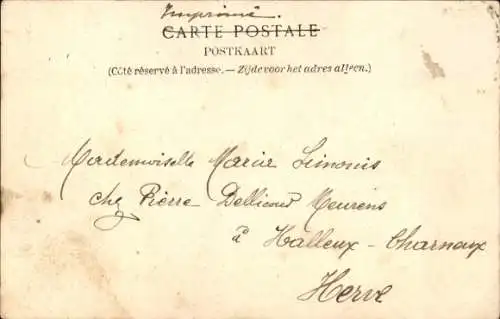 Imprimé.
CARTE POSTALE
POSTKAART
(Côté réservé à l'adresse. — Zijde voor het adres alleen.)
Mademoiselle Marie Simonis
chez Pierre Dellicour Meurens
à Halleux - Charneux
Herve